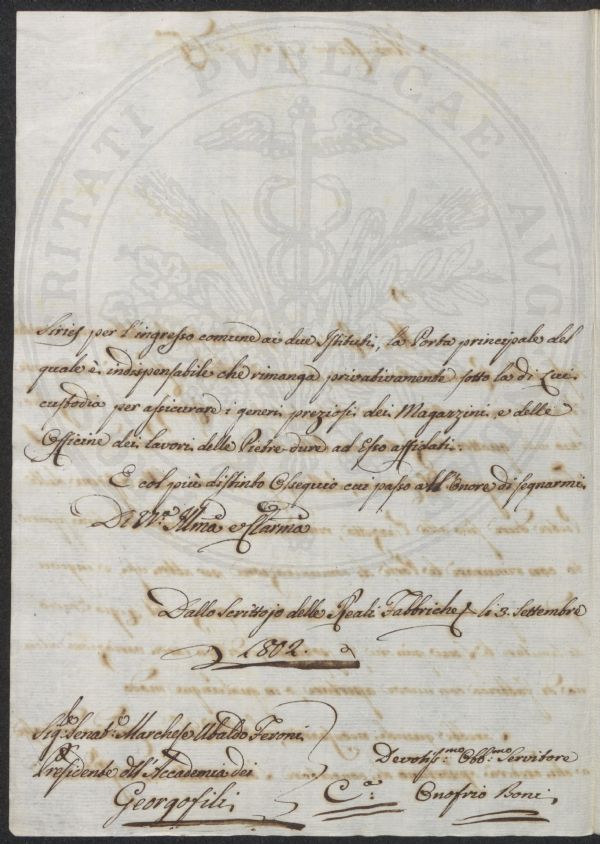 PROSPERITATI PUBLICAE AUG
Siries per l'ingresso comune ai due Istituti, la Porta principale del
quale è indispensabile che rimanga privativamente sotto la di Lui
custodia per assicurare i generi preziosi dei Magazzini, e delle
Officine dei lavori delle Pietre dure ad Esso affidati.
E col più distinto Ossequio cui passo all'Onore di segnarmi
Di V.S. Illma e Clarma
Dallo Scrittojo delle Reali Fabbriche li 3. Settembre
1802.
Sigre Senat.e Marchese Ubaldo Feroni
Presidente dell'Accademia dei
Georgofili
Devotiss.mo Obb.mo Servitore
Ca. Onofrio Boni